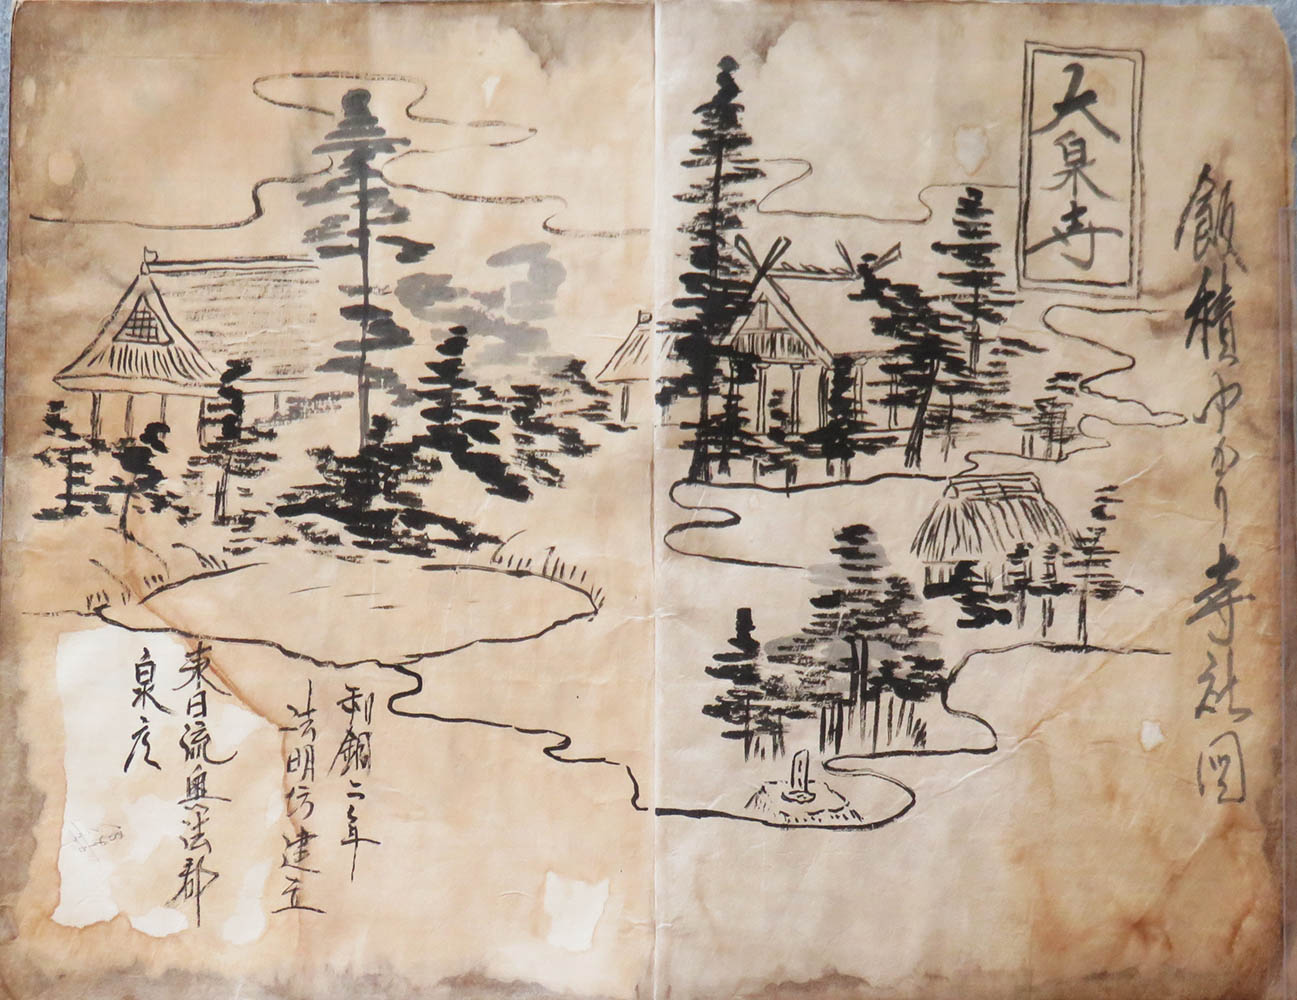 飯積ゆかり寺社図
大泉寺
和銅二年
法明坊建立
東日流奥法郡
泉彦